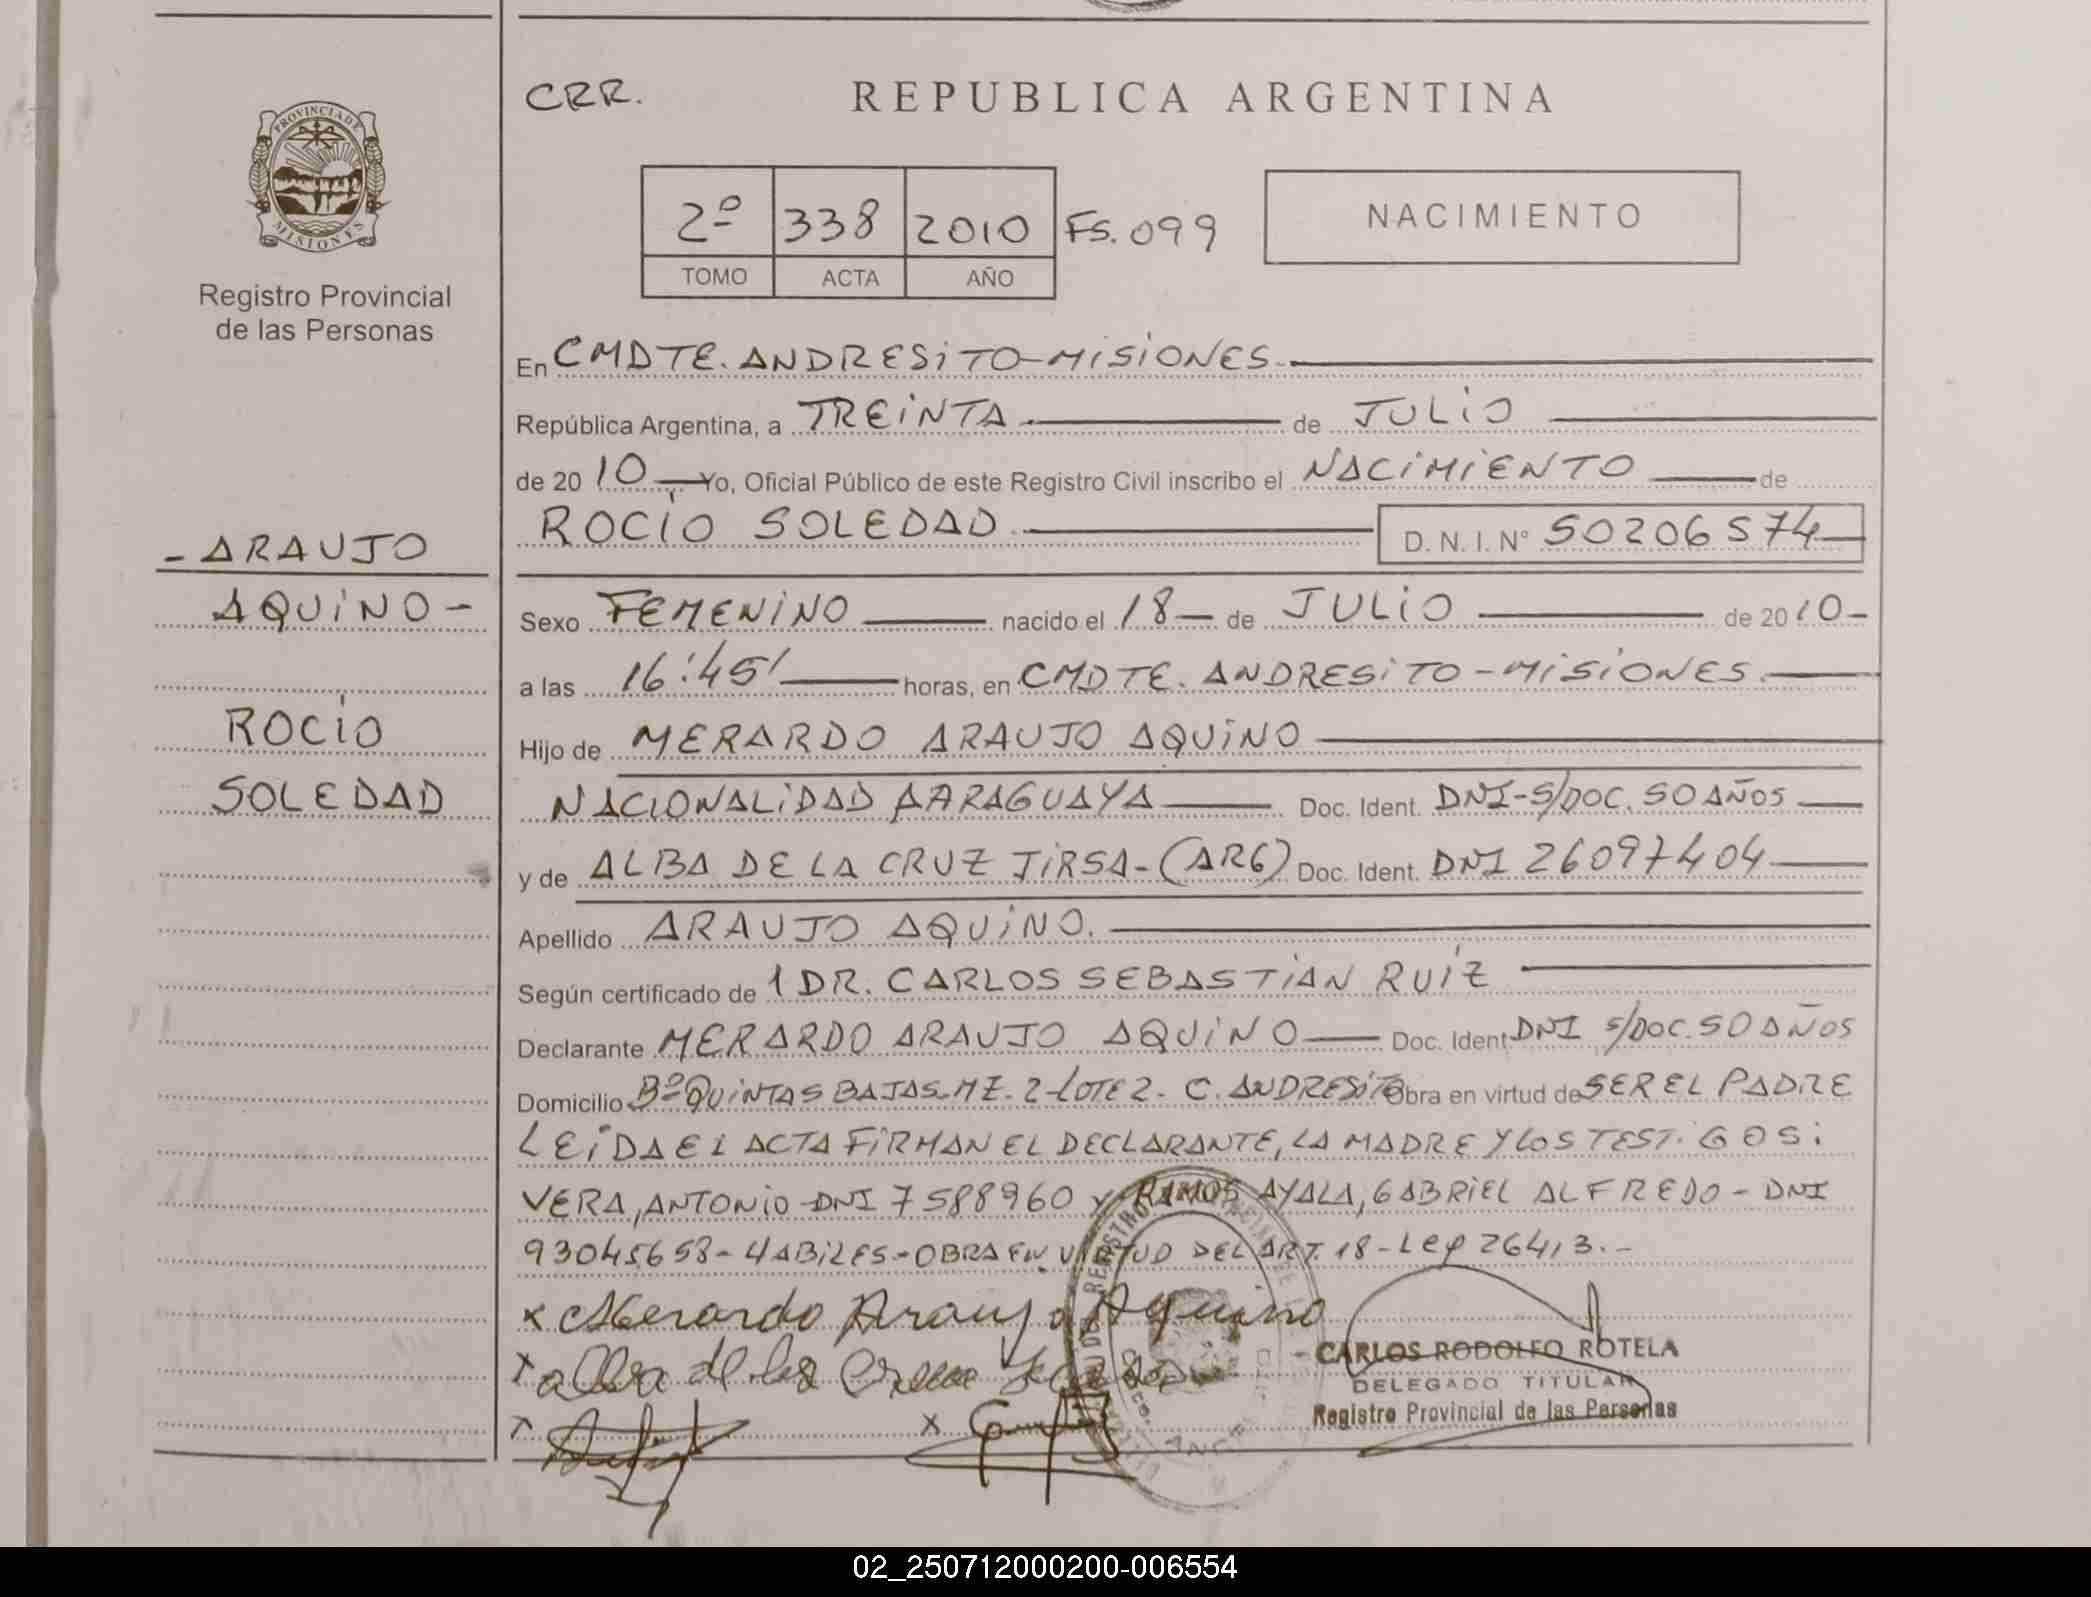 CRR.
REPUBLICA ARGENTINA
PROVINCIA DE
MISIONES
Registro Provincial
de las Personas
2º 338 2010 FS. 099
TOMO ACTA AÑO
NACIMIENTO
En CMDTE. ANDRESiTO-MiSiONES.
República Argentina, a TREiNTA de JULiO
de 2010 Yo, Oficial Público de este Registro Civil inscribo el NACiMiENTO de
ROCÍO SOLEDAD. D. N. I. Nº 50206574
- ARAUJO
AQUiNO -
ROCÍO
SOLEDAD
Sexo FEMENiNO nacido el 18 de JULiO de 2010-
a las 16:45' horas, en CMDTE. ANDRESiTO - MiSiONES.
Hijo de MERARDO ARAUJO AQUiNO
NACIONALiDAD PARAGUAYA Doc. Ident. DNI-S/DOC. 50 AÑOS
y de ALBA DE LA CRUZ JiRSA-(ARG) Doc. Ident. DNI 26097404
Apellido ARAUJO AQUiNO.
Según certificado de 1 DR. CARLOS SEBASTiAN RUÍZ
Declarante MERARDO ARAUJO AQUiNO Doc. Ident DNI S/DOC. 50 AÑOS
Domicilio Bº QUiNTAS BAJAS-MZ. 2-LOTE 2. C. ANDRESiTO Obra en virtud de SER EL PADRE
LEiDA EL ACTA FiRMAN EL DECLARANTE, LA MADRE Y LOS TESTiGOS:
VERA, ANTONiO-DNI 7588960 y RAMOS AYALA, GABRiEL ALFREDO - DNI
93045658-HABiLES-OBRA EN ViRTUD DEL ART. 18-Ley 26413.-
x Merardo Araujo Aquino
x Alba de la Cruz
x x
CARLOS RODOLFO ROTELA
DELEGADO TITULAR
Registro Provincial de las Personas
02_250712000200-006554